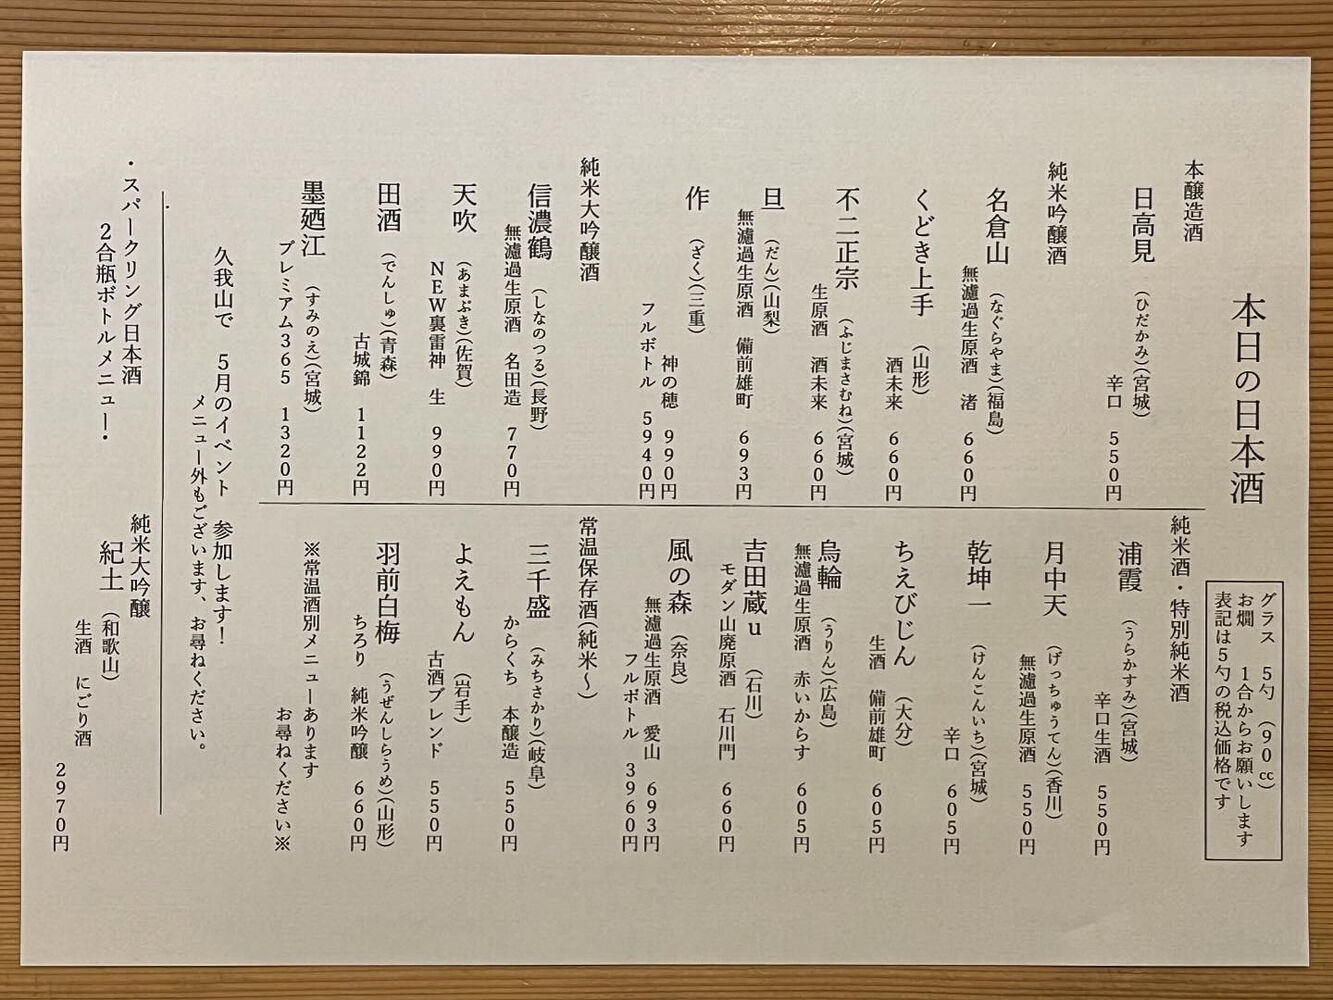 本日の日本酒
グラス 5勺 (90㏄)
お燗 1合からお願いします
表記は5勺の税込価格です
本醸造酒
日高見 (ひだかみ)(宮城)
辛口 550円
純米吟醸酒
名倉山 (なぐらやま)(福島)
無濾過生原酒 渚 660円
くどき上手 (山形)
酒未来 660円
不二正宗 (ふじまさむね)(宮城)
生原酒 酒未来 660円
旦 (だん)(山梨)
無濾過生原酒 備前雄町 693円
作 (ざく)(三重)
神の穂 990円
フルボトル 5940円
純米大吟醸酒
信濃鶴 (しなのつる)(長野)
無濾過生原酒 名田造 770円
天吹 (あまぶき)(佐賀)
NEW裏雷神 生 990円
田酒 (でんしゅ)(青森)
古城錦 1122円
墨廼江 (すみのえ)(宮城)
プレミアム365 1320円
純米酒・特別純米酒
浦霞 (うらかすみ)(宮城)
辛口生酒 550円
月中天 (げっちゅうてん)(香川)
無濾過生原酒 550円
乾坤一 (けんこんいち)(宮城)
辛口 605円
ちえびじん (大分)
生酒 備前雄町 605円
烏輪 (うりん)(広島)
無濾過生原酒 赤いからす 605円
吉田蔵u (石川)
モダン山廃原酒 石川門 660円
風の森 (奈良)
無濾過生原酒 愛山 693円
フルボトル 3960円
常温保存酒(純米~)
三千盛 (みちさかり)(岐阜)
からくち 本醸造 550円
よえもん (岩手)
古酒ブレンド 550円
羽前白梅 (うぜんしらうめ)(山形)
ちろり 純米吟醸 660円
※常温酒別メニューあります
お尋ねください※
久我山で 5月のイベント 参加します!
メニュー外もございます、お尋ねください。
・スパークリング日本酒
2合瓶ボトルメニュー・
純米大吟醸
紀土 (和歌山)
生酒 にごり酒
2970円